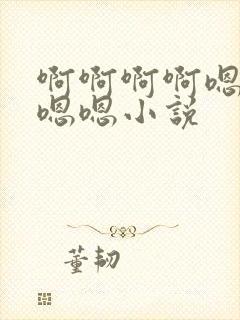 啊啊啊啊嗯
嗯嗯小説
董韧